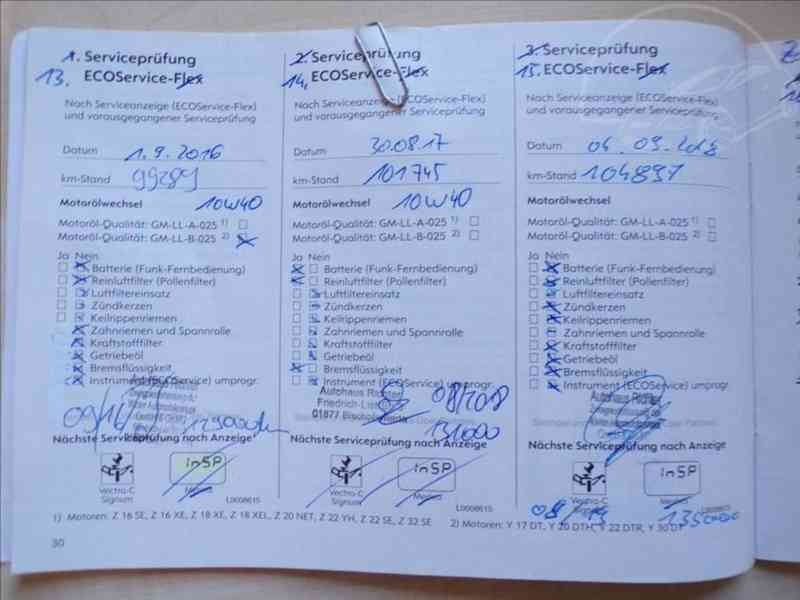 1. Serviceprüfung
13. ECOService-Flex
Nach Serviceanzeige (ECOService-Flex)
und vorausgegangener Serviceprüfung
Datum 1.9.2016
km-Stand 99289
Motorölwechsel 10W40
Motoröl-Qualität: GM-LL-A-025 1)
Motoröl-Qualität: GM-LL-B-025 2)
Ja Nein
Batterie (Funk-Fernbedienung)
Reinluftfilter (Pollenfilter)
Luftfiltereinsatz
Zündkerzen
Keilrippenriemen
Zahnriemen und Spannrolle
Kraftstofffilter
Getriebeöl
Bremsflüssigkeit
Instrument (ECOService) umprogr.
09/16
Nächste Serviceprüfung nach Anzeige
InSP
Vectra-C
Signum
Meriva
L0008615
2. Serviceprüfung
14. ECOService-Flex
Nach Serviceanzeige (ECOService-Flex)
und vorausgegangener Serviceprüfung
Datum 30.08.17
km-Stand 101745
Motorölwechsel 10W40
Motoröl-Qualität: GM-LL-A-025 1)
Motoröl-Qualität: GM-LL-B-025 2)
Ja Nein
Batterie (Funk-Fernbedienung)
Reinluftfilter (Pollenfilter)
Luftfiltereinsatz
Zündkerzen
Keilrippenriemen
Zahnriemen und Spannrolle
Kraftstofffilter
Getriebeöl
Bremsflüssigkeit
Instrument (ECOService) umprogr.
Autohaus
Friedrich-List
01877
08/2018
131000
Nächste Serviceprüfung nach Anzeige
InSP
Vectra-C
Signum
Meriva
L0008615
3. Serviceprüfung
15. ECOService-Flex
Nach Serviceanzeige (ECOService-Flex)
und vorausgegangener Serviceprüfung
Datum 04.09.2018
km-Stand 104897
Motorölwechsel
Motoröl-Qualität: GM-LL-A-025 1)
Motoröl-Qualität: GM-LL-B-025 2)
Ja Nein
Batterie (Funk-Fernbedienung)
Reinluftfilter (Pollenfilter)
Luftfiltereinsatz
Zündkerzen
Keilrippenriemen
Zahnriemen und Spannrolle
Kraftstofffilter
Getriebeöl
Bremsflüssigkeit
Instrument (ECOService) umprogr.
Autohaus
Nächste Serviceprüfung nach Anzeige
InSP
Vectra-C
Signum
Meriva
08/19
135000
1) Motoren: Z 16 SE, Z 16 XE, Z 18 XE, Z 18 XEL, Z 20 NET, Z 22 YH, Z 22 SE, Z 32 SE 2) Motoren: Y 17 DT, Y 20 DTH, Y 22 DTR, Y 30 DT
30